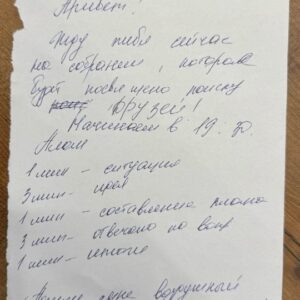 Привет!
Жду тебя сейчас
на собрании, которое
будет посвящено поиску
друзей!
Начинаем в 19:30
План
1 мин – ситуация
3 мин – идея
1 мин – составление плана
3 мин – отвечаю на вопр
1 мин – итоги
воздушный